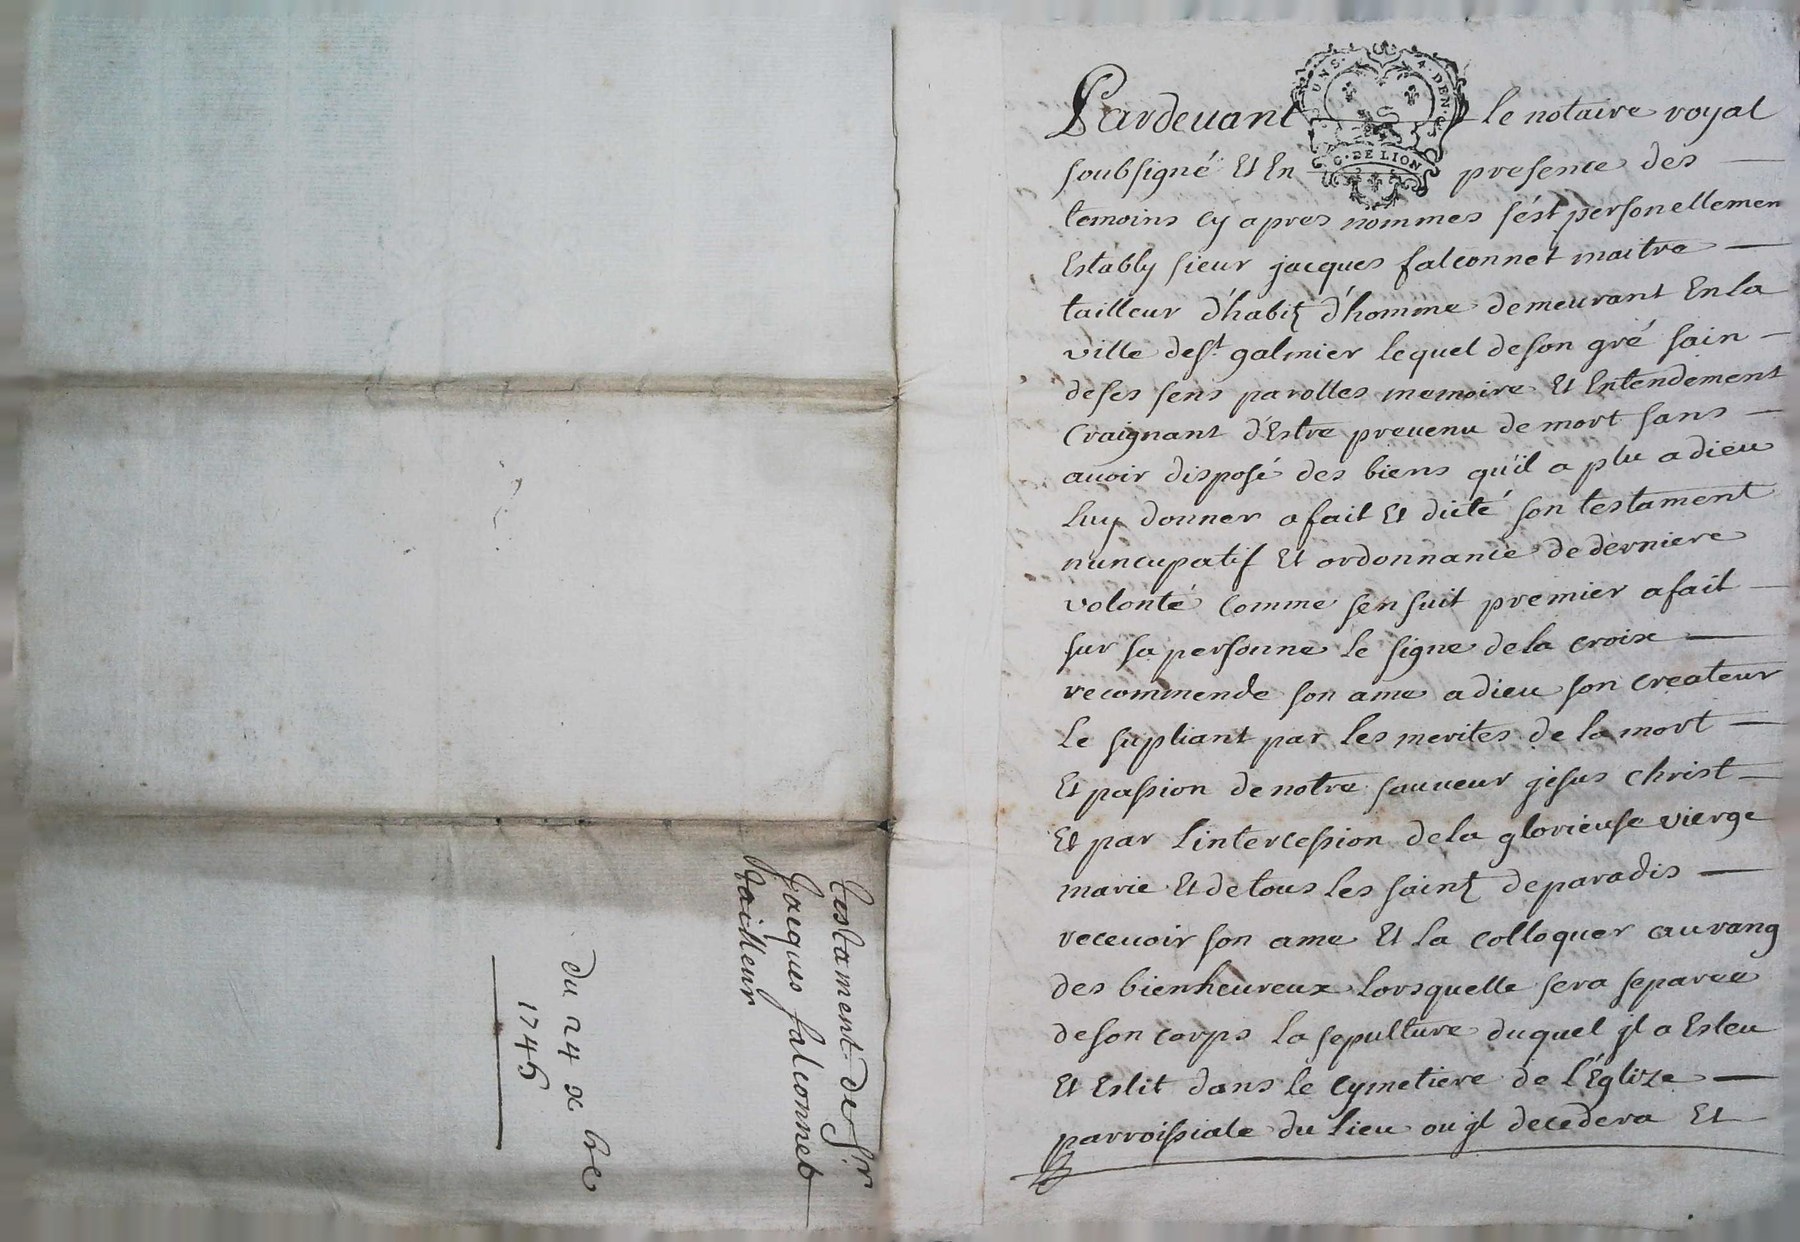 testament de Sr
jacques falconnet
tailleur
du 24 xbre
1745
Pardevant le notaire royal
soubsigné Et En presence des
temoins cy apres nommes s'ést personellemen
Estably sieur jacques falconnet maitre
tailleur d'habitz d'homme demeurant En la
ville de st galmier lequel de son gré sain
de ses sens parolles memoire Et Entendement
Craignant d'Estre preuenu de mort sans
auoir disposé des biens qu'il a plu a dieu
luy donner a fait Et dicté son testament
nuncupatif Et ordonnance de derniere
volonté comme sensuit premier a fait
sur sa personne le signe de la croix
recommende son ame a dieu son createur
le supliant par les merites de la mort
Et passion de notre sauueur jesus christ
Et par l'intercession de la glorieuse vierge
marie Et de tous les saintz de paradis
receuoir son ame Et la colloquer au rang
des bienheureux lorsquelle sera separée
de son corps la sepulture duquel jl a Esleu
Et Eslit dans le cymetiere de l'Églize
parroissiale du lieu ou jl decedera Et
G. DE LION